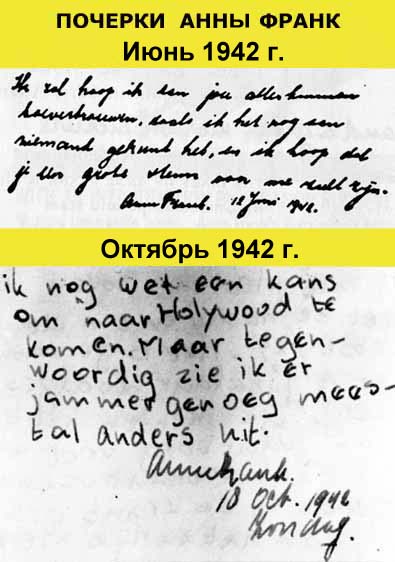 ПОЧЕРКИ АННЫ ФРАНК
Июнь 1942 г.
Ik zal hoop ik aan jou alles kunnen
toevertrouwen, zoals ik het nog aan
niemand gekund heb, en ik hoop dat
je een grote steun van me zult zijn.
Anne Frank. 12 Juni 1942.
Октябрь 1942 г.
ik nog wel een kans
om naar Holywood te
komen. Maar tegen-
woordig zie ik er
jammer genoeg mees-
tal anders uit.
Anne Frank.
18 Oct. 1942
Zondag.